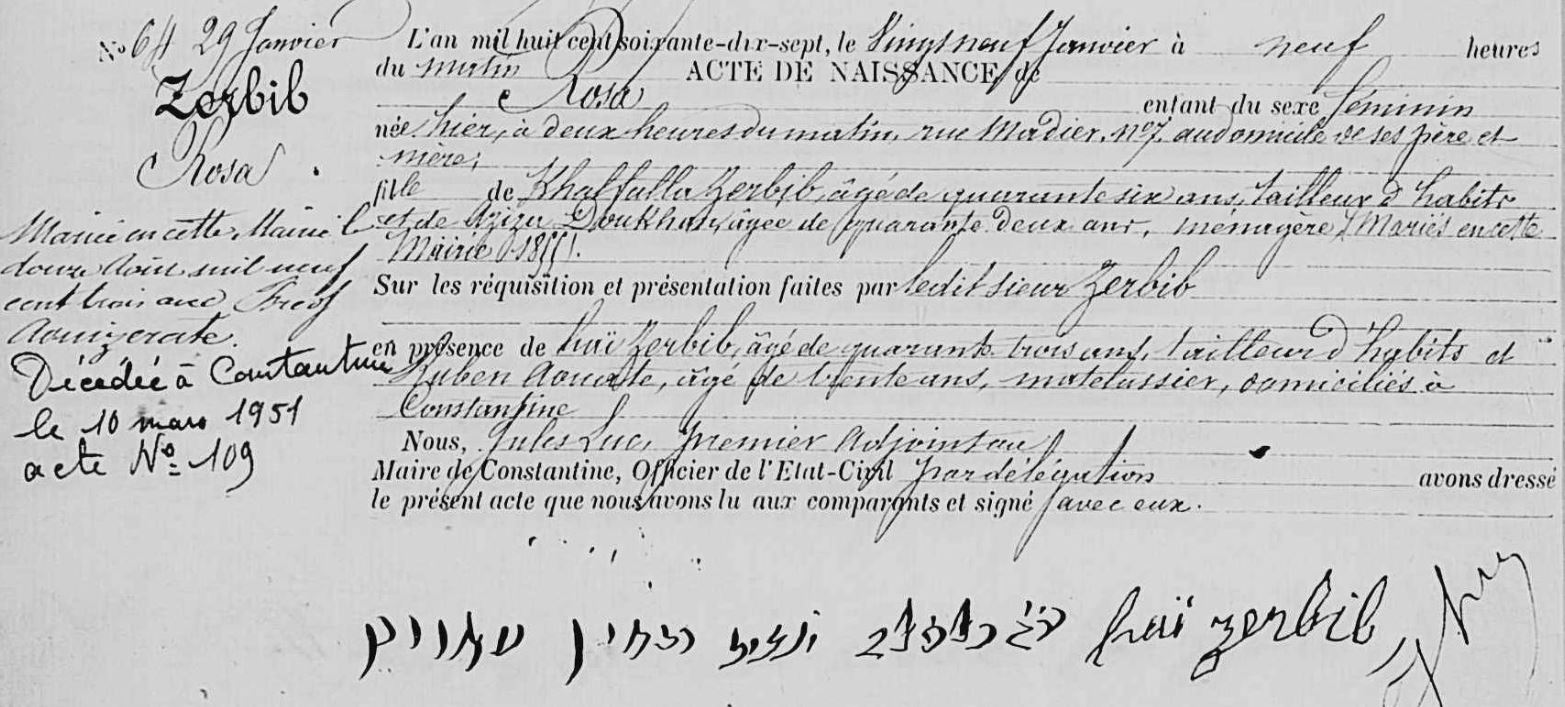 Nº 64 29 Janvier
Zerbib
Rosa
Mariée en cette Mairie le
douze Août mil neuf
cent trois avec
Aouizerate.
Décédée à Constantine
le 10 mars 1951
acte Nº 109
L'an mil huit cent soixante-dix-sept, le Vingt neuf Janvier à neuf heures
du matin ACTE DE NAISSANCE de
Rosa enfant du sexe féminin
née hier, à deux heures du matin, rue Madier, Nº 7, au domicile de ses père et
mère;
fille de Khalfalla Zerbib, âgé de quarante six ans, tailleur d'habits
et de Aziza Doukhan, âgée de quarante deux ans, ménagère (Mariés en cette
Mairie 1855).
Sur les réquisition et présentation faites par ledit sieur Zerbib
en présence de haï Zerbib, âgé de quarante trois ans, tailleur d'habits et
Ruben Aouate, âgé de trente ans, matelassier, domiciliés à
Constantine
Nous, Jules Luc, premier Adjoint au
Maire de Constantine, Officier de l'Etat-Civil par délégation avons dressé
le présent acte que nous avons lu aux comparants et signé avec eux.
haï zerbib